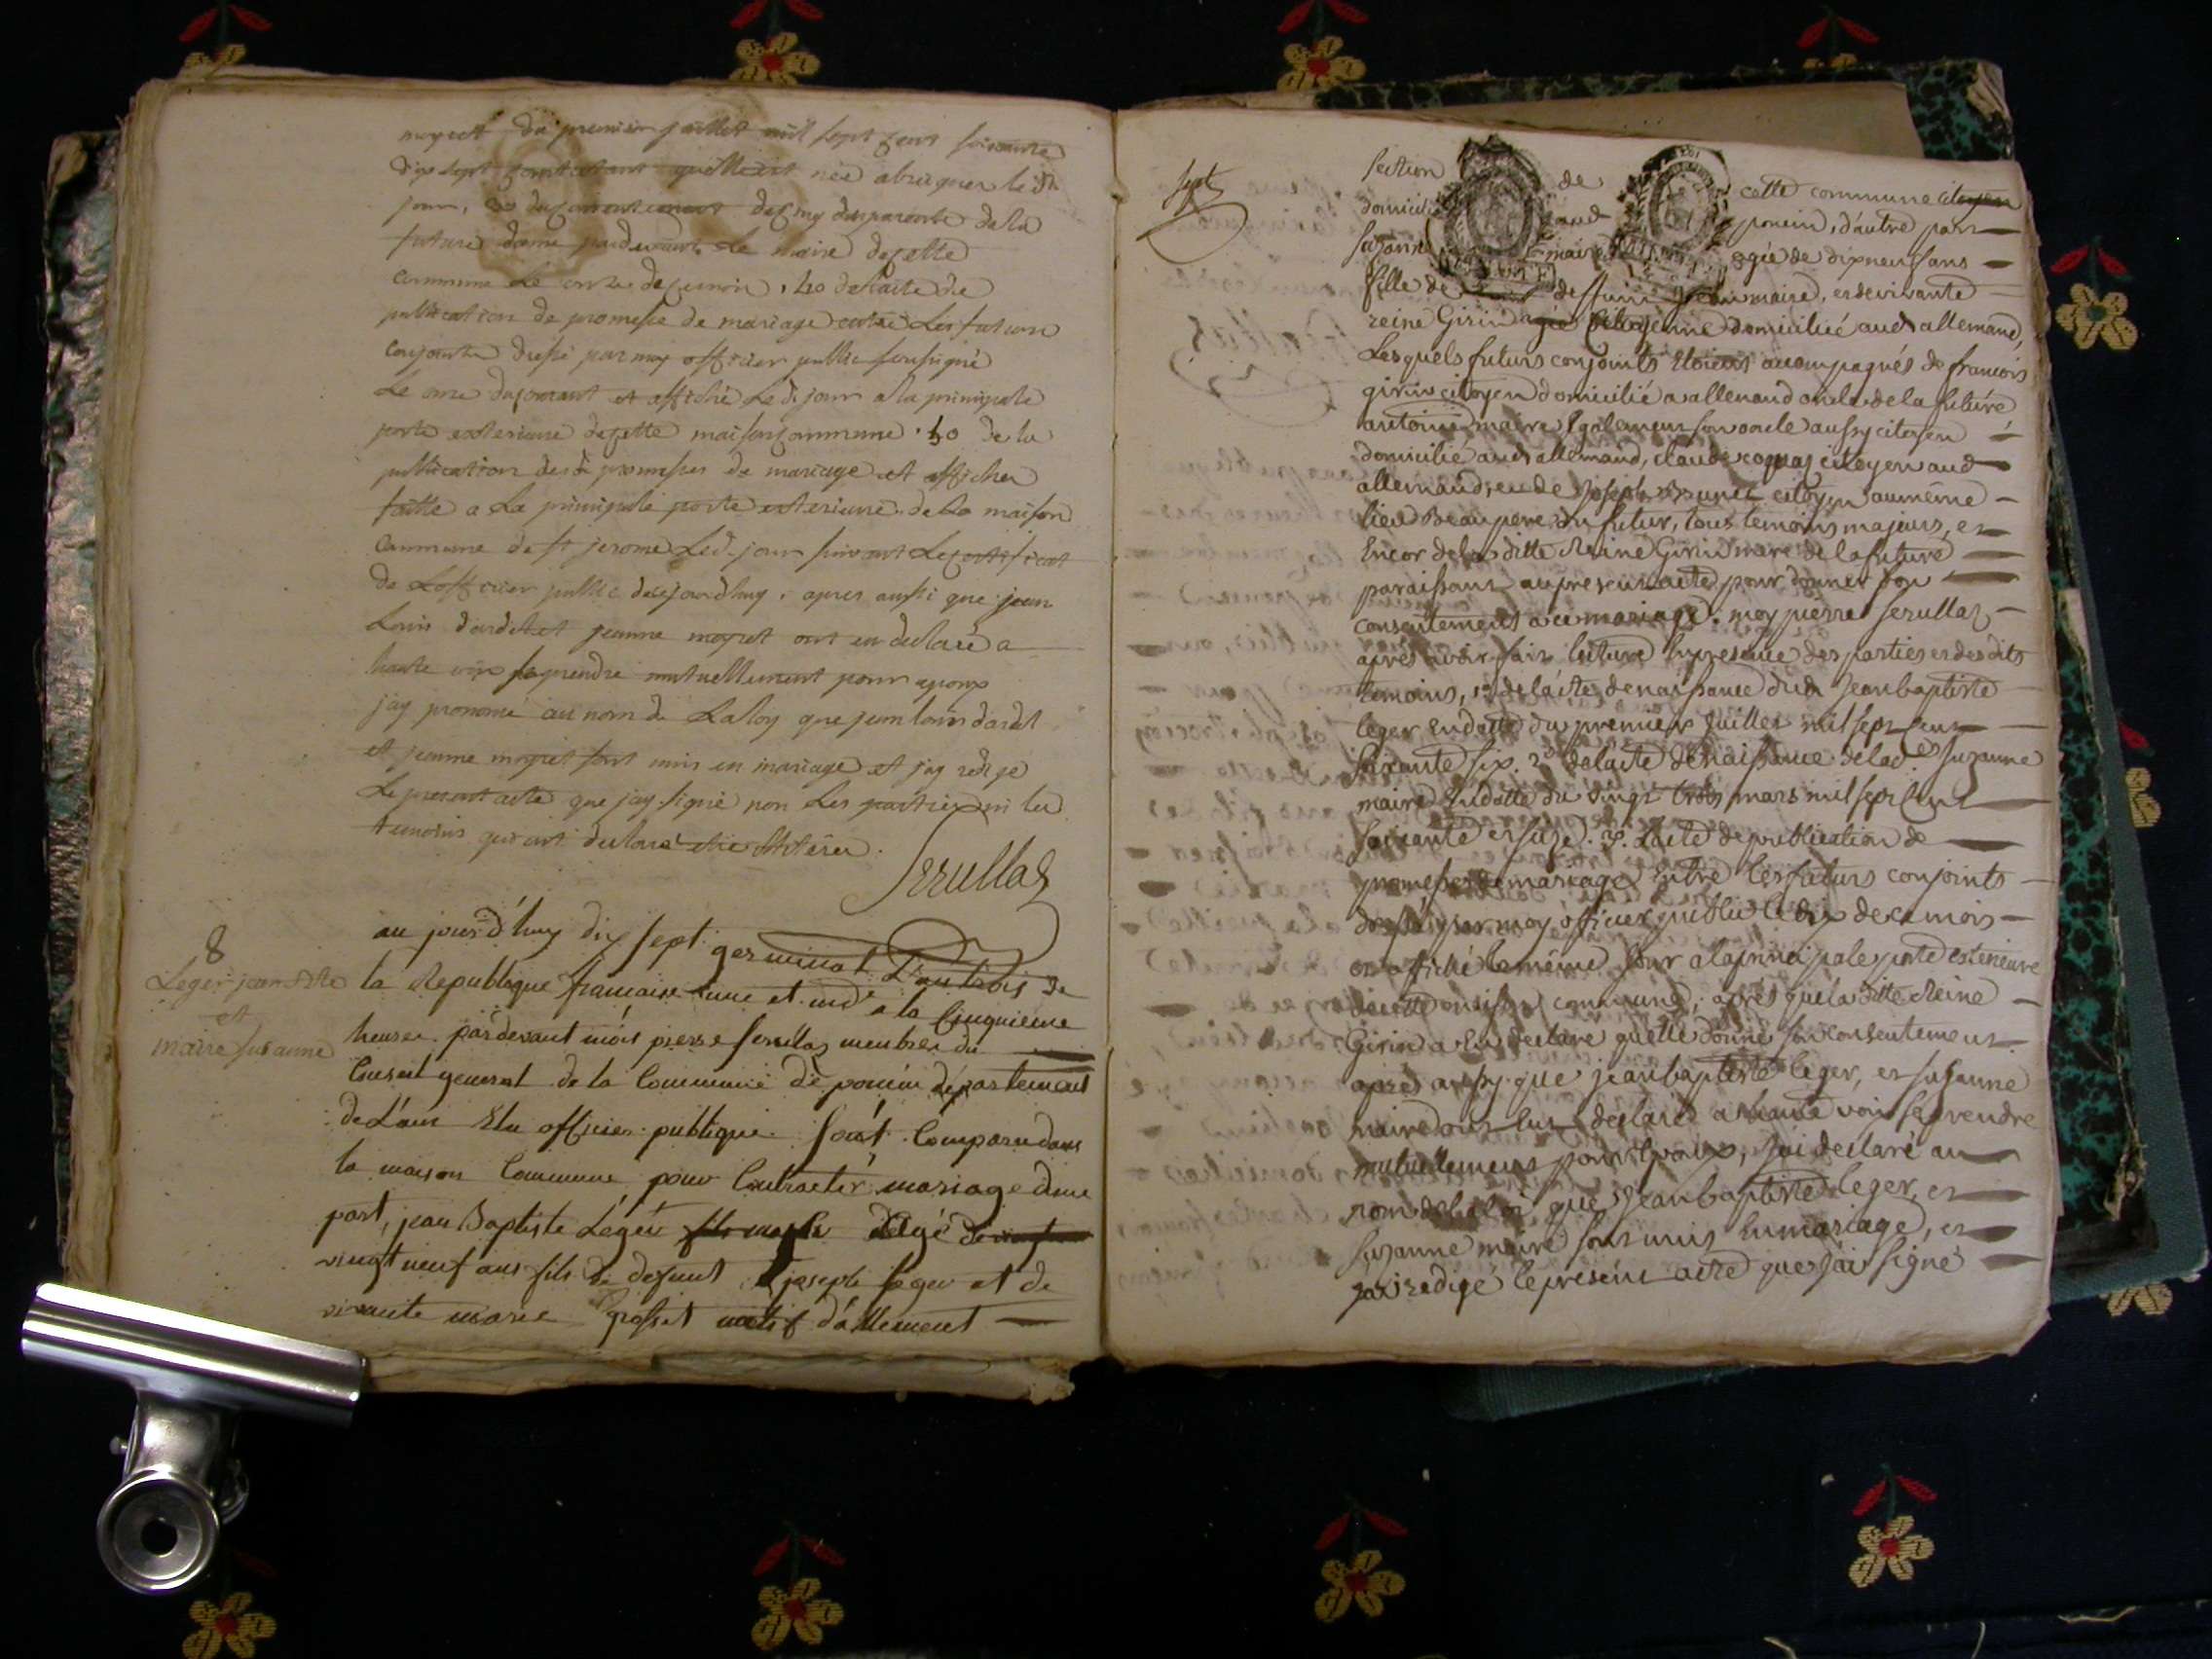 mogret du premier juillet mil sept cent soixante
dixe sept constatant quelle est née abrignier le dt
jour,
future donné pardevant Le maire decette
commune Le onze de cemois, 4o de lacte de
publication de promesse de mariage entre Les futurs
conjoints dressé par moy officier public soussigné
Le onze du courant et affiché Led. jour a la principale
porte exterieure decette maison commune. 5o de la
publication des de promesses de mariage et affiches
faitte a La principale porte exterieure de la maison
Commune de st jerome Led. jour suivant Lecertificat
de Lofficier public decejourdhuy. apres aussi que jean
Louis dardet et jeanne mogret ont eu declaré a
haute voix se prendre mutuellement pour epoux
jay prononcé au nom de La loy que jean louis dardet
et jeanne mogret sont unis en mariage et jay redigé
Le present acte que jay signé non Les parties ni les
temoins qui ont declaré etre illiterés.
Serullaz
8
Leger jean Bte
et
maire susanne
au jourd'huy dix sept germinal L'an trois de
la Republique francaise une et inde a la Cinquieme
heures pardevant mois pierre serullaz membres du
Conseil general de la Commune de poncin département
de L'ain Elu officier publique sont Comparu dans
la maison Commune pour Contracter mariage d'une
part, jean Baptiste Léger âgé de
vingt neuf ans fils de defunt joseph leger et de
vivante marie grosset natif d'allement
sept
section de cette commune citoyen
domicilié aud poncin, d'autre part
suzanne maire agée de dixneuf ans
fille de deffunt jean maire, et de vivante
reine Girin citoyenne domiciliée aud allemand,
Lesquels futurs conjoints étoient accompagnés de francois
girin citoyen domicilié a allemand oncle de la future
antoine maire Egalement son oncle aussy citoyen
domicilié aud allemand, claude coquaz citoyen aud
allemand, et de joseph Brunet citoyen au même
lieu Beaupere du futur, tous temoins majeurs, et
Encor de la ditte Reine Girin mere de la future
paraissant au present acte pour donner son
consentement a ce mariage. moy pierre serullaz
apres avoir fait lecture En presence des parties et des dits
temoins, 1o de lacte de naissance dud. jean baptiste
leger En datte du premier juillet mil sept cent
soixante six. 2o de lacte de naissance de lade. suzanne
maire En datte du vingt trois mars mil sept cent
soixante et seize. 3o. Lacte de publication de
promesses de mariage entre les futurs conjoints
dressé par moy officier public le dix de ce mois
et affiché le même jour a la principale porte exterieure
de cette maison commune, aprés que la ditte Reine
Girin a Eu declaré quelle donne son consentement
aprés aussy que jean baptiste leger, et suzanne
maire ont Eus declaré a haute voix se prendre
mutuellement pour Epoux, j'ai declaré au
nom de la loi que jean baptiste leger, et
suzanne maire sont unis En mariage, et
j'ai redigé le present acte que j'ai signé